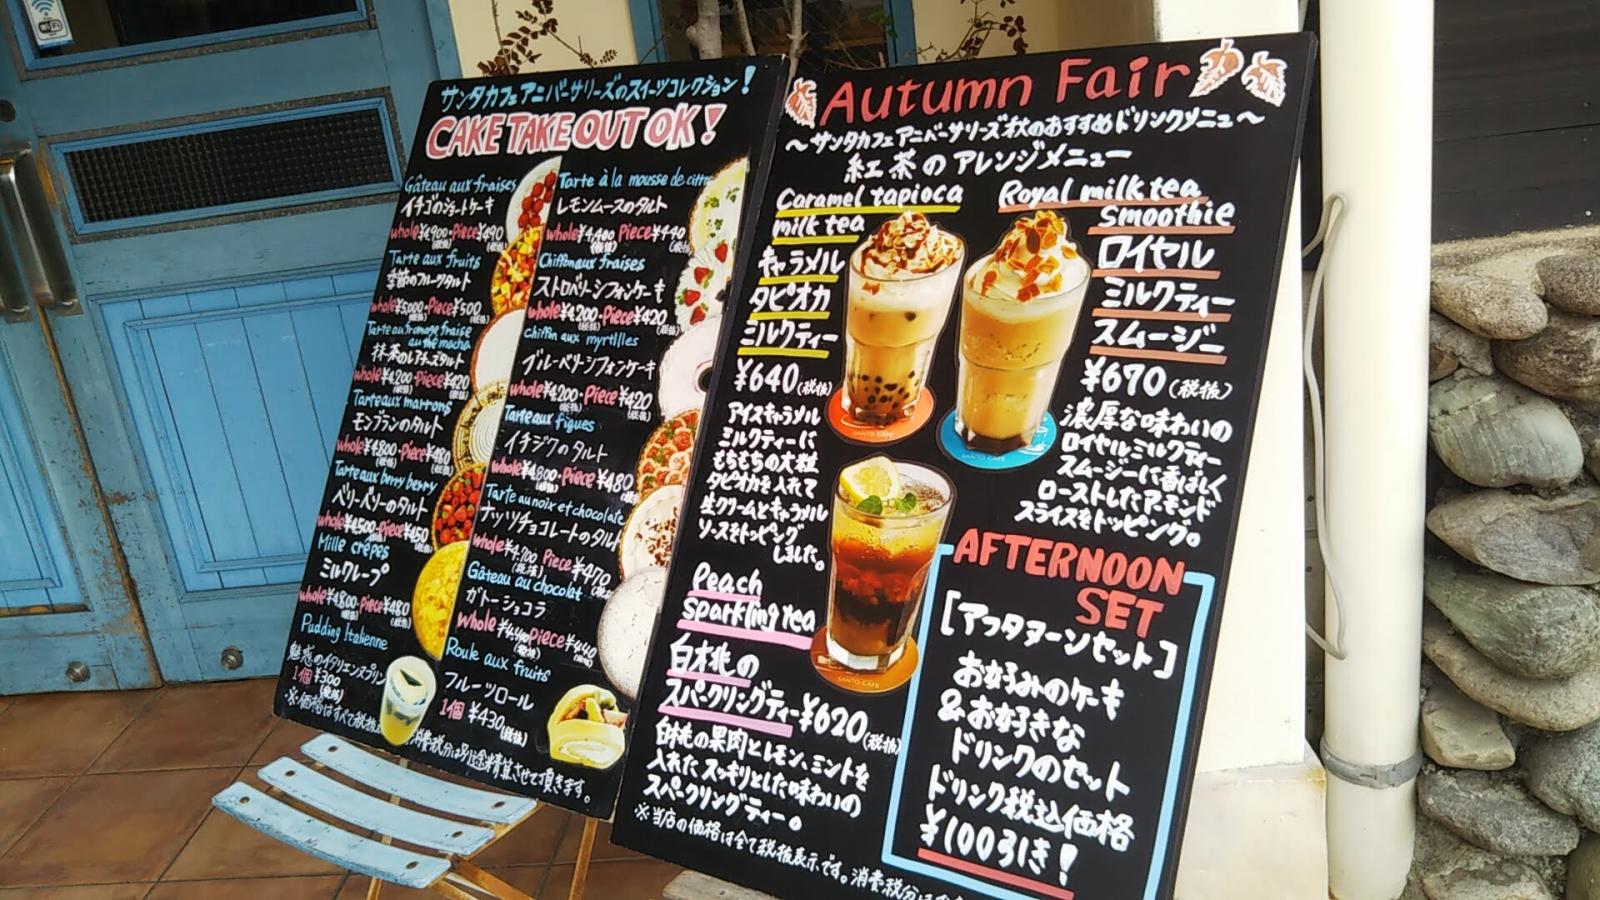 サンタカフェアニバーサリーズのスイーツコレクション!
CAKE TAKE OUT OK!
Gâteau aux fraises
イチゴのショートケーキ
whole¥4,900・Piece¥490
(税抜)
Tarte aux fruits
季節のフルーツタルト
whole¥5,000・Piece¥500
(税抜)
Tarte au fromage fraise
au thé macha
抹茶のレアチーズタルト
whole¥4,200・Piece¥420
Tarte aux marrons
モンブランのタルト
whole¥4,800・Piece¥480
(税抜)
Tarte aux berry berry
ベリーベリーのタルト
whole¥4,500・Piece¥450
(税抜)
Mille crêpes
ミルクレープ
whole¥4,800・Piece¥480
(税抜)
Pudding Italienne
魅惑のイタリエンヌプリン
1個 ¥300
(税抜)
Tarte à la mousse de citron
レモンムースのタルト
whole¥4,400 Piece¥440
(税抜)
Chiffon aux fraises
ストロベリーシフォンケーキ
whole¥4,200・Piece¥420
(税抜)
Chiffon aux myrtilles
ブルーベリーシフォンケーキ
whole¥4,200・Piece¥420
(税抜)
Tarte aux figues
イチジクのタルト
whole¥4,800・Piece¥480
(税抜)
Tarte au noix et chocolate
ナッツチョコレートのタルト
whole¥4,700 Piece¥470
(税抜)
Gâteau au chocolat
ガトーショコラ
whole¥4,440 Piece¥440
(税抜)
Roule aux fruits
フルーツロール
1個 ¥430(税抜)
※価格はすべて税抜 消費税分は別途精算させて頂きます。
Autumn Fair
〜サンタカフェアニバーサリーズ秋のおすすめドリンクメニュー〜
紅茶のアレンジメニュー
Caramel tapioca
milk tea
キャラメル
タピオカ
ミルクティー
¥640(税抜)
アイスキャラメル
ミルクティーに
もちもちの大粒
タピオカを入れて
生クリームとキャラメル
ソースをトッピング
しました。
Royal milk tea
smoothie
ロイヤル
ミルクティー
スムージー
¥670(税抜)
濃厚な味わいの
ロイヤルミルクティー
スムージーに香ばしく
ローストしたアーモンド
スライスをトッピング。
SANTO CAFE
SANTO CAFE
SANTO CAFE
Peach
sparkling tea
白桃の
スパークリングティー¥620(税抜)
白桃の果肉とレモン、ミントを
入れたスッキリとした味わいの
スパークリングティー。
※当店の価格は全て税抜表示です。消費税分は
AFTERNOON
SET
[アフタヌーンセット]
お好みのケーキ
&お好きな
ドリンクのセット
ドリンク税込価格
¥100引き!